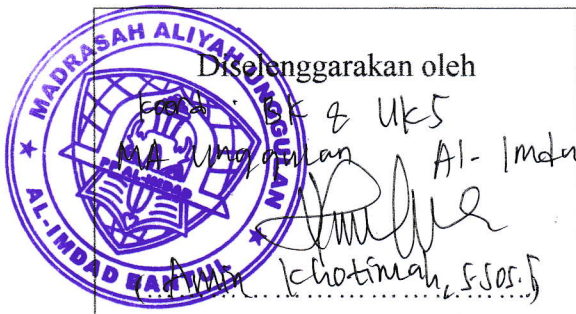 MADRASAH ALIYAH UNGGULAN
AL-IMDAD BANTUL
PP AL-IMDAD
Diselenggarakan oleh
Koord. BK & UKS
MA Unggulan Al-Imdad
(Amin Khotimah, S.Sos.)